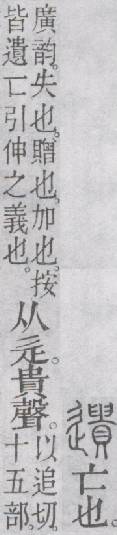 遺亡也。
廣韵。失也。贈也。加也。按
皆遺亡引伸之義也。
从辵。貴聲。
以追切。
十五部。